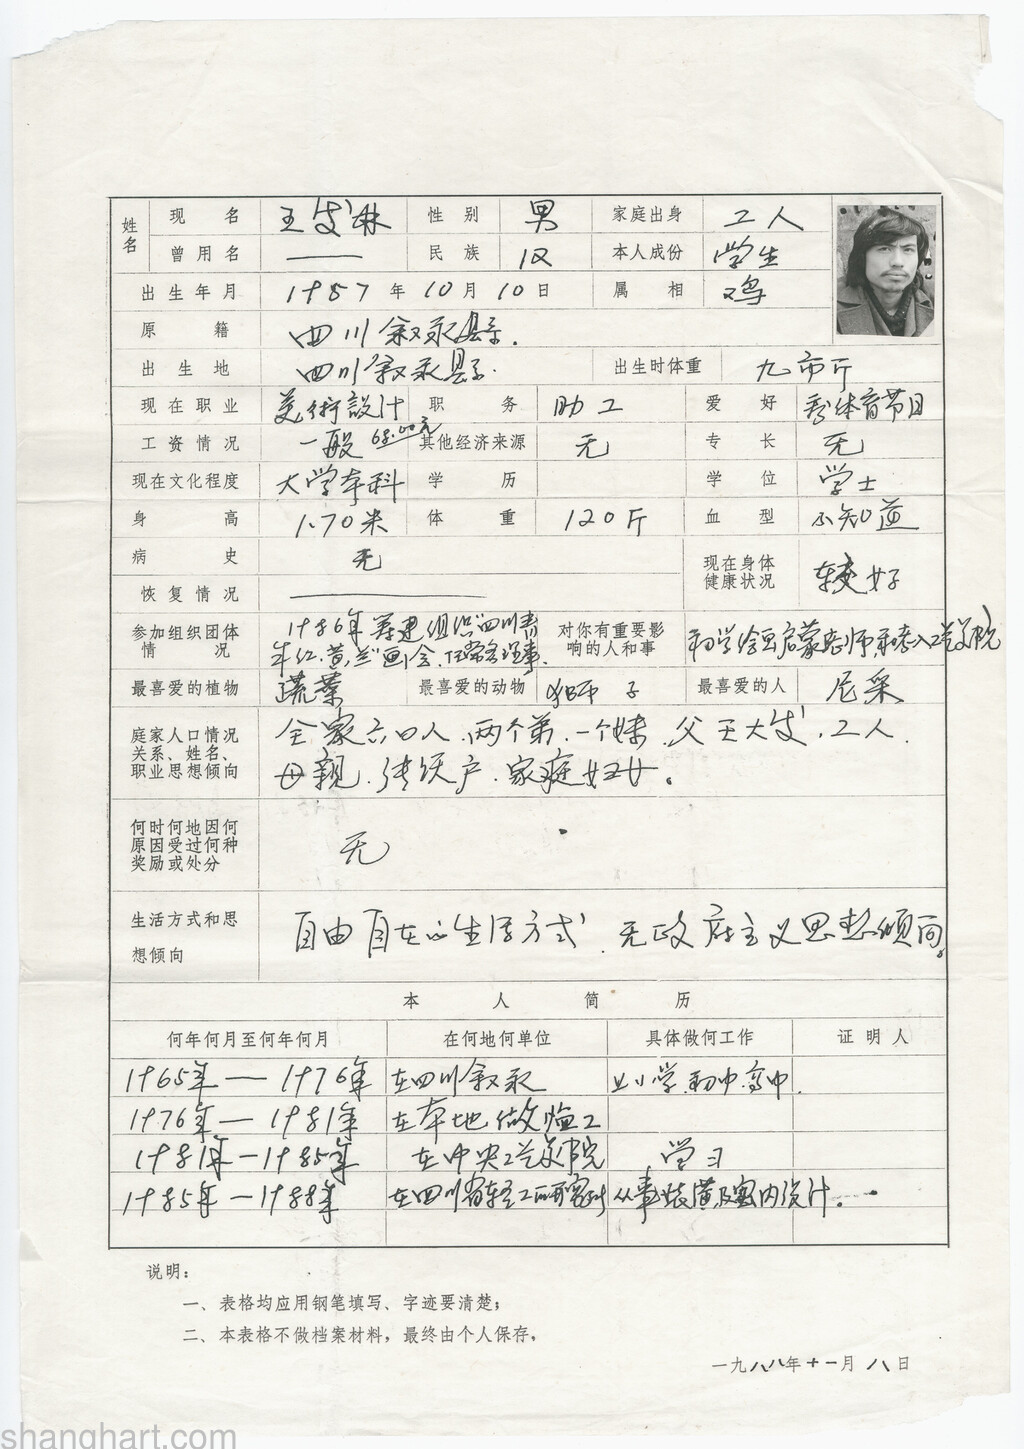 姓名 现名 王发林 性别 男 家庭出身 工人
曾用名 —— 民族 汉 本人成份 学生
出生年月 1957年10月10日 属相 鸡
原籍 四川叙永县.
出生地 四川叙永县. 出生时体重 九市斤
现在职业 美術設计 职务 助工 爱好 看体育节目
工资情况 一般 68.00元 其他经济来源 无 专长 无
现在文化程度 大学本科 学历 学位 学士
身高 1.70米 体重 120斤 血型 不知道
病史 无 现在身体健康状况 较好
恢复情况 ——
参加组织团体情况 1986年筹建组织"四川青年红.黄.兰"画会.任常务理事. 对你有重要影响的人和事 初学绘画启蒙老师,和考入工艺美院
最喜爱的植物 蔬菜 最喜爱的动物 狮子 最喜爱的人 尼采
庭家人口情况 全家六口人、两个弟、一个妹、父王大发,工人.
关系、姓名、
职业思想倾向 母親. 家庭妇女。
何时何地因何
原因受过何种 无
奖励或处分
生活方式和思想倾向 自由自在的生活方式、无政府主义思想倾向。
本人简历
何年何月至何年何月 在何地何单位 具体做何工作 证明人
1965年—1976年 在四川叙永 小学.初中.高中.
1976年—1981年 在本地做临工
1981年—1985年 在中央工艺美院 学习
1985年—1988年 在四川省轻工研究所 从事装潢及室内设计.
说明:
一、表格均应用钢笔填写、字迹要清楚;
二、本表格不做档案材料,最终由个人保存,
一九八八年十一月八日
shanghart.com